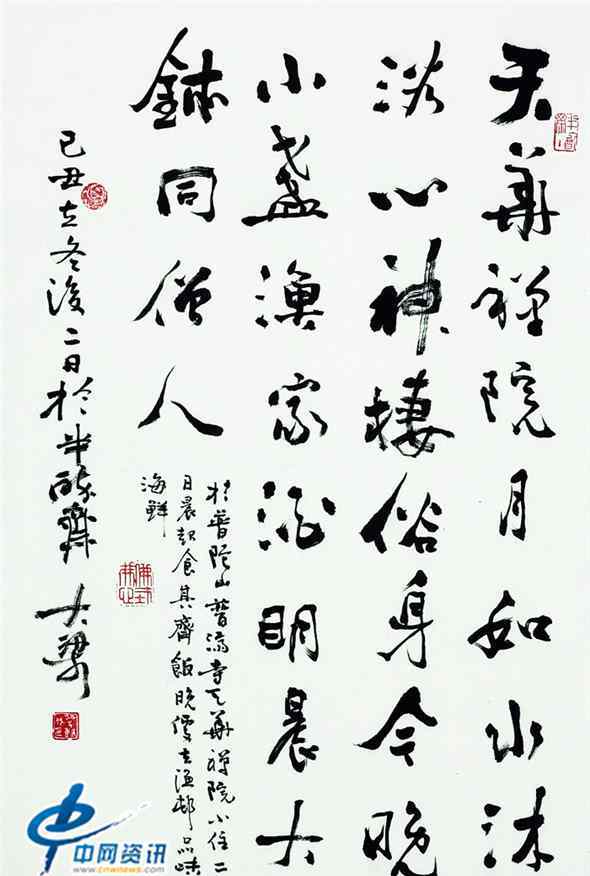 天華禪院月如水沐
浴心神棲俗身今晚
小盞漁家酒明晨大
鉢同僧人
於普陀山普濟寺天華禪院小住二
日晨起食其齋飯晚便去漁邨品味
海鮮
己丑立冬後二日於半醉齋 大梁
中网资讯
www.cnwnews.com